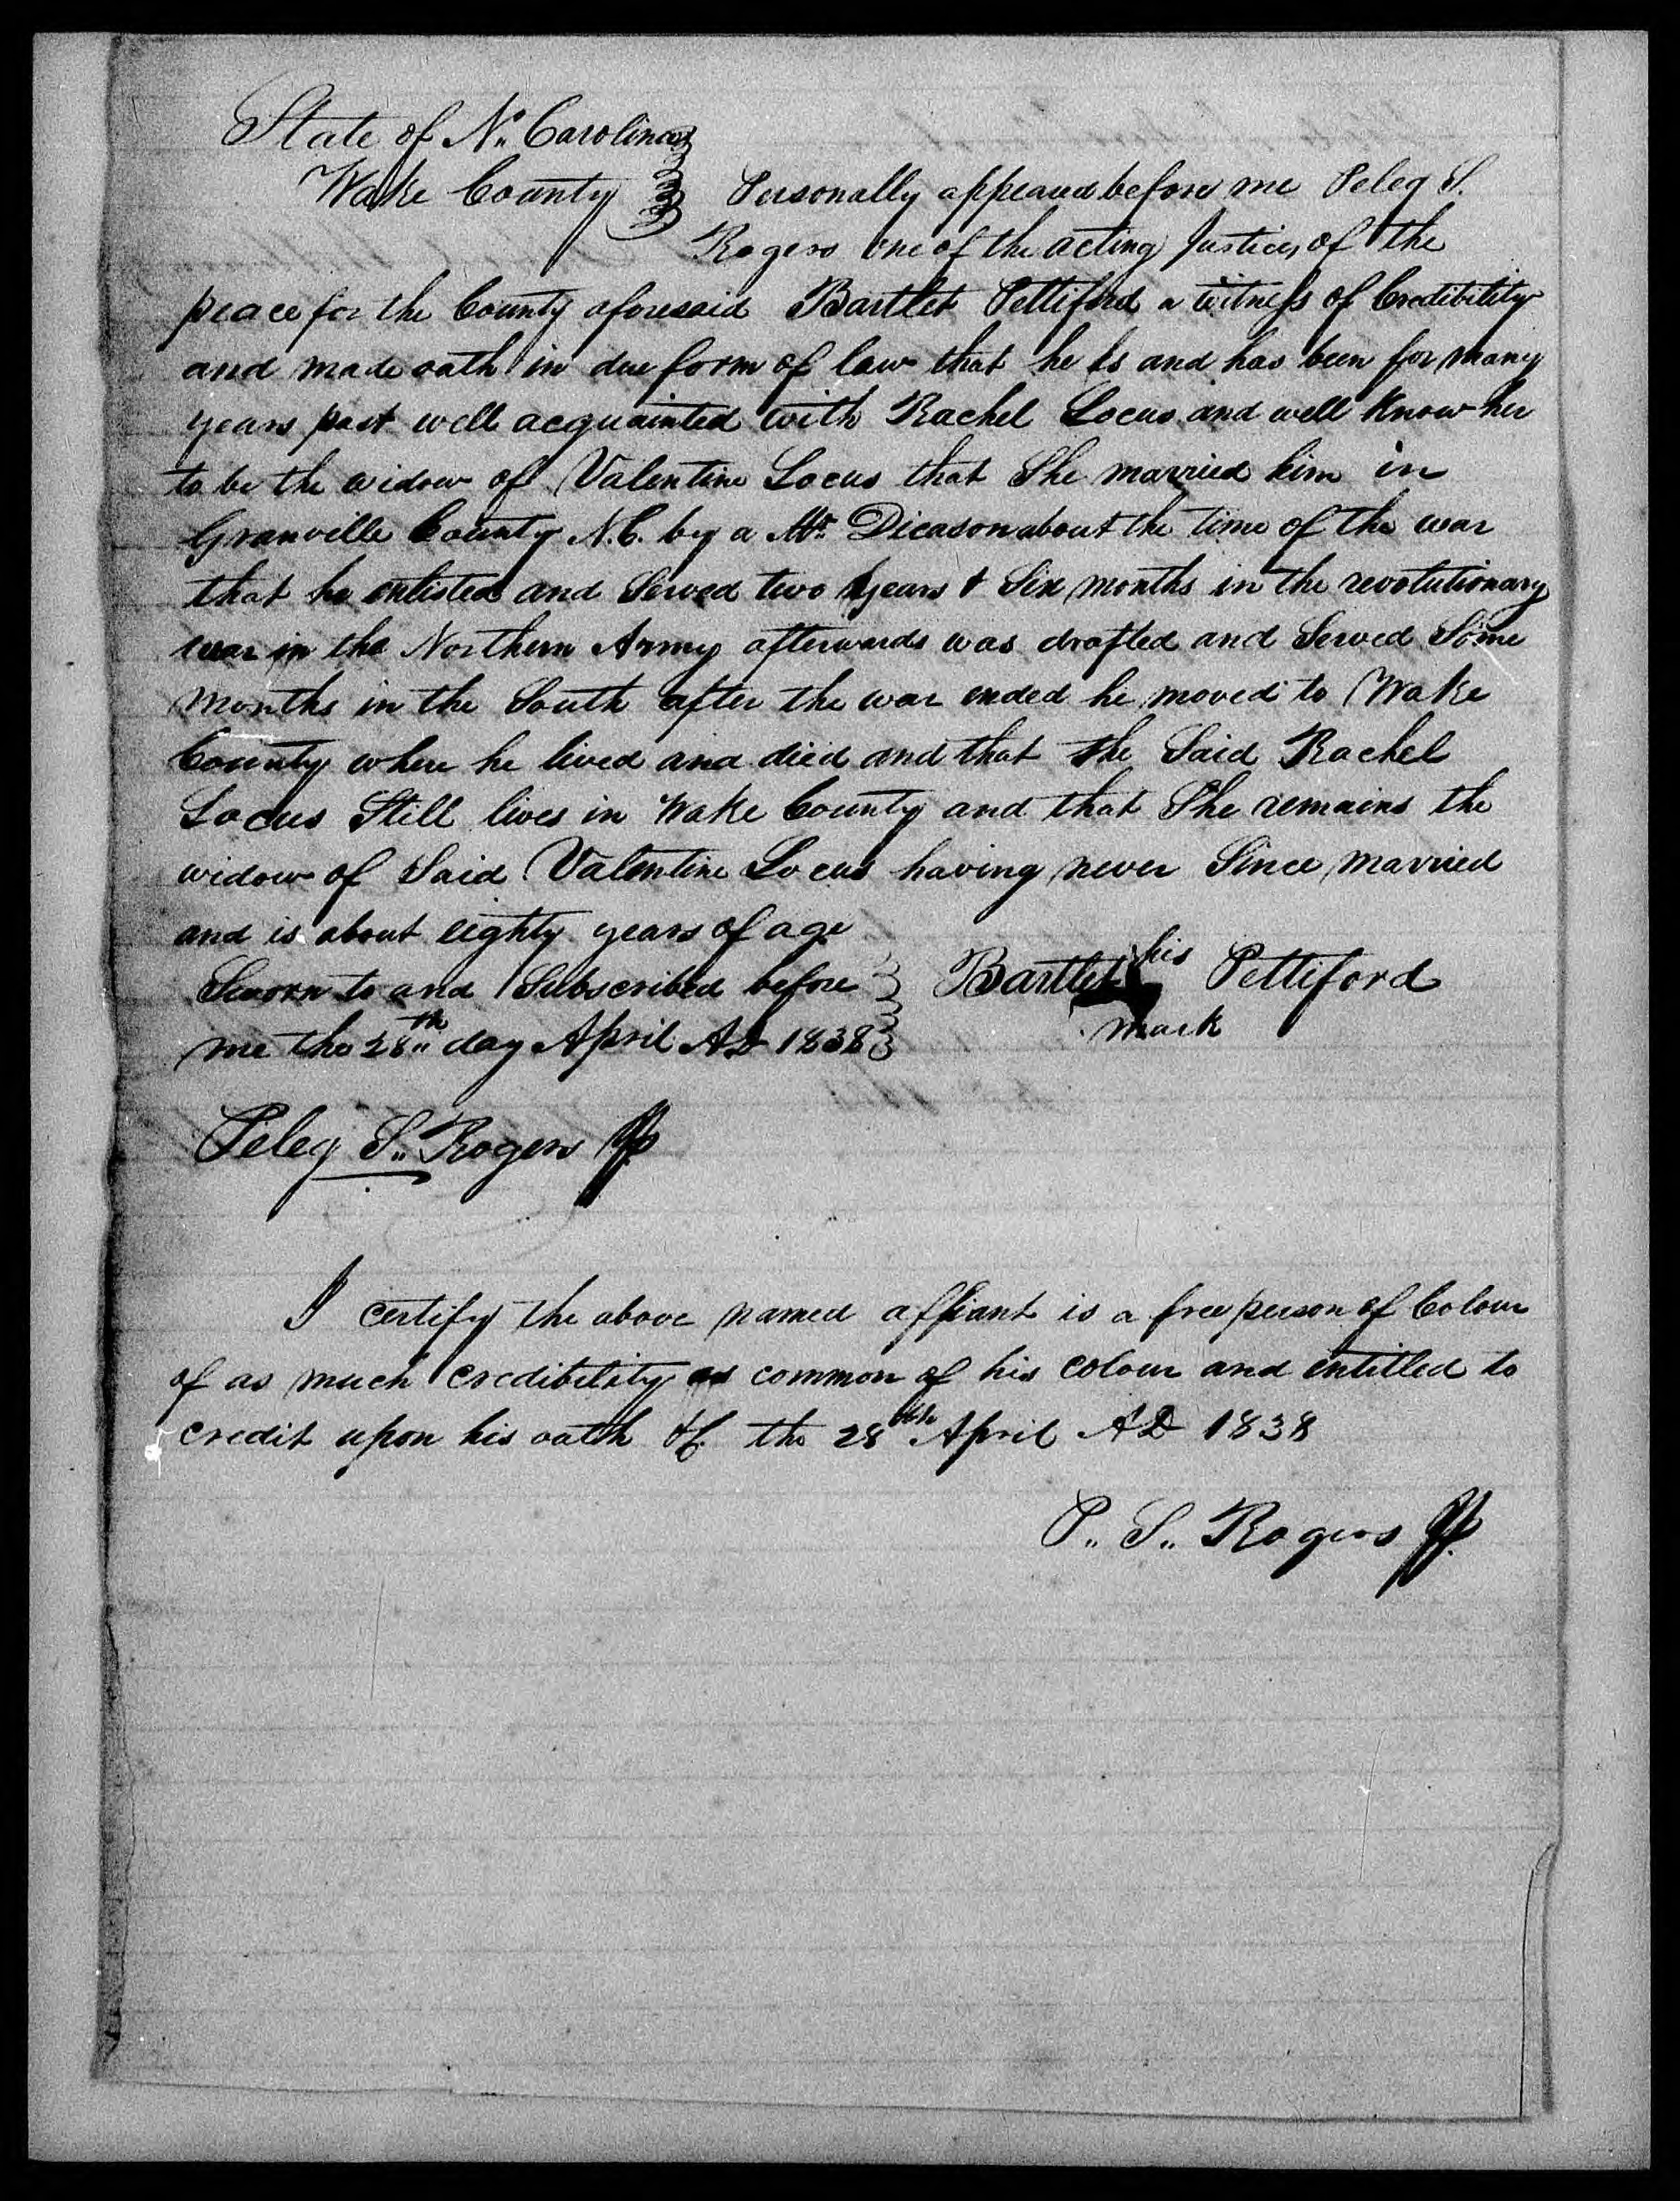 State of No. Carolina
Wake County Personally appeared before me Peleg S.
Rogers one of the acting Justices of the
peace for the County aforesaid Bartlet Pettiford a witness of Credibility
and made oath in due form of law that he is and has been for many
years past well acquainted with Rachel Locus and well Know her
to be the widow of Valentine Locus that She married him in
Granville County N.C. by a Mr. Dicason about the time of the war
that he enlisted and Served two years & Six months in the revolutionary
war in the Northern Army afterwards was drafted and Served Some
months in the South after the war ended he moved to Wake
County where he lived and died and that the Said Rachel
Locus Still lives in Wake County and that She remains the
widow of Said Valentine Locus having never Since married
and is about eighty years of age
Sworn to and Subscribed before
me the 28th day April AD 1838
his
Bartlet Pettiford
mark
Peleg S. Rogers JP
I certify the above named affiant is a free person of Colour
of as much credibility as common of his colour and entitled to
credit upon his oath &c. the 28th April AD 1838
P. S. Rogers JP